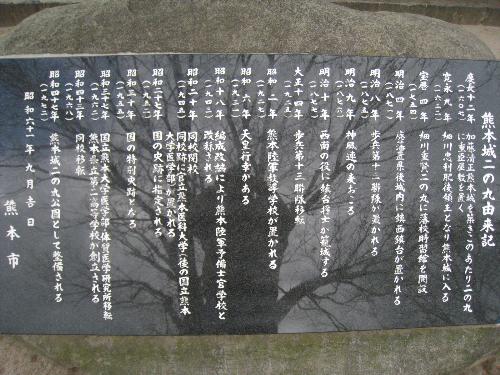 熊本城二の九由来記
慶長十二年
(一六〇七)
加藤清正熊本城を築きこのあたり二の丸
に重臣屋敷を置く
寛永九年
細川忠利肥後領主となり熊本城に入る
宝暦四年
細川重賢二の丸に藩校時習館を開設
明治四年
(一八七一)
廃藩置県後城内に鎮西鎮台が置かれる
明治八年
(一八七五)
歩兵第十三聯隊が置かれる
明治九年
(一八七六)
神風連の変おこる
明治十年
(一八七七)
西南の役に鎮台将士が籠城する
大正十四年
(一九二五)
歩兵第十三聯隊移転
昭和二年
(一九二七)
熊本陸軍教導学校が置かれる
昭和六年
(一九三一)
天皇行幸がある
昭和十八年
(一九四三)
編成改協により熊本陸軍予備士官学校と
改称される
昭和二十年
(一九四五)
同校閉校
同校跡に国立熊本医科大学(後の国立熊本
大学医学部)置かれる
昭和二十七年
国の史跡に指定される
昭和三十年
(一九五五)
国の特別史跡となる
昭和三十七年
(一九六二)
国立熊本大学医学部体質医学研究所移転
熊本県立第二高等学校が創立される
昭和四十三年
(一九六八)
同校移転
昭和四十七年
(一九七二)
熊本城二の丸公園として整備される
昭和六十一年九月吉日
熊本市